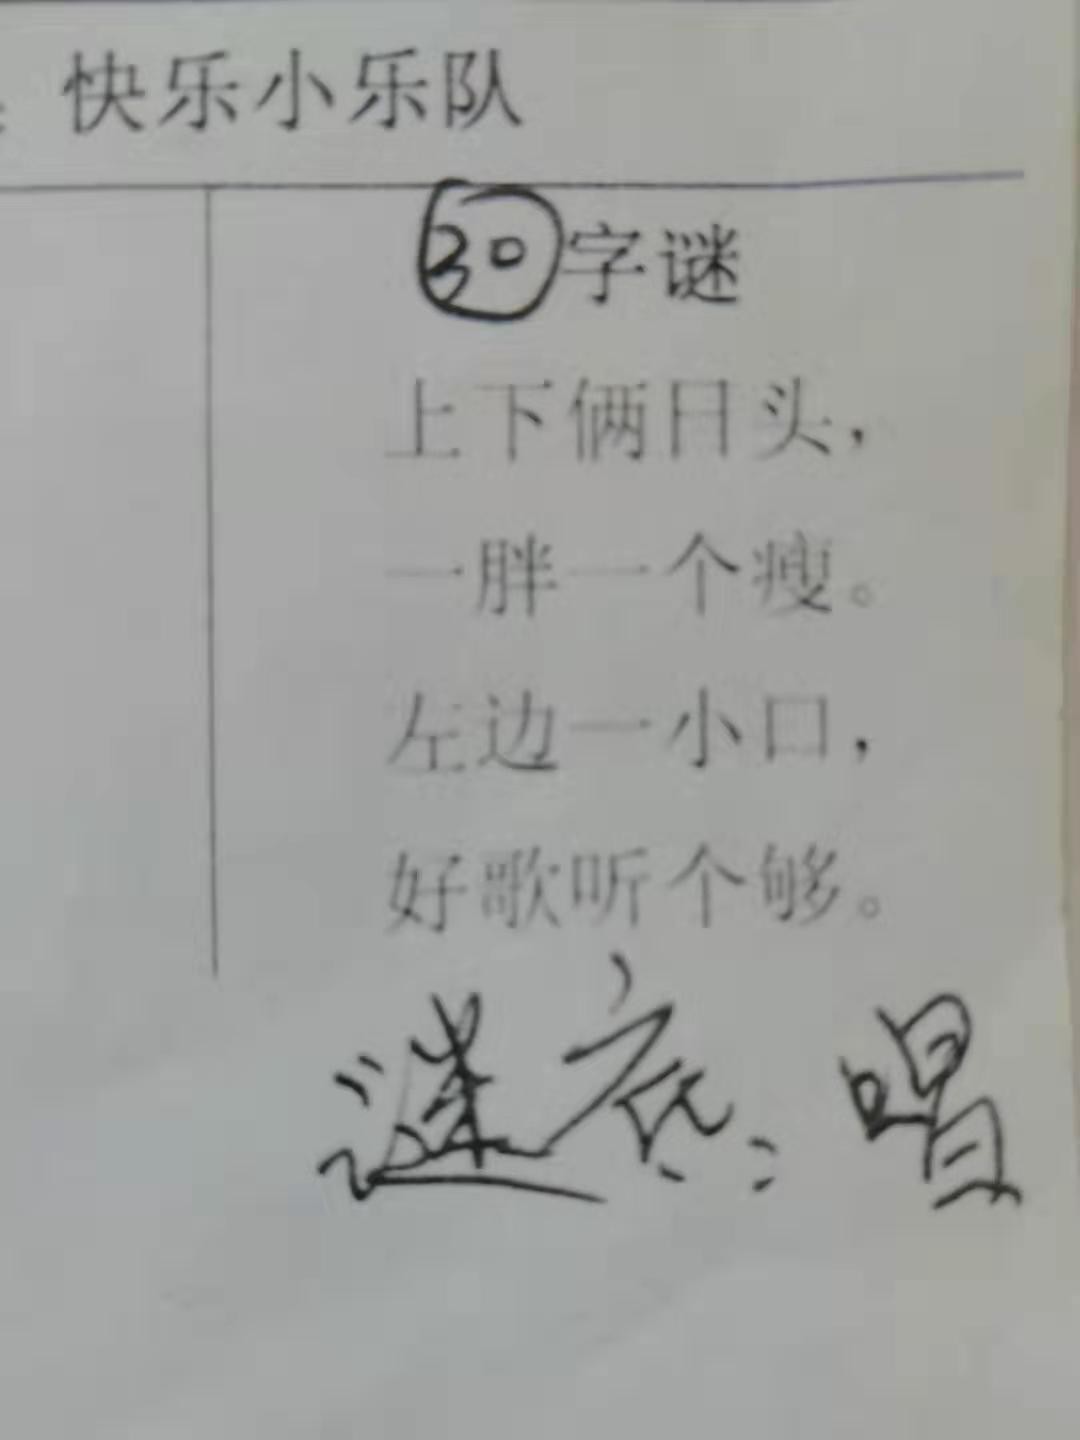 快乐小乐队
30字谜
上下俩日头，
一胖一个瘦。
左边一小口，
好歌听个够。
谜底：唱